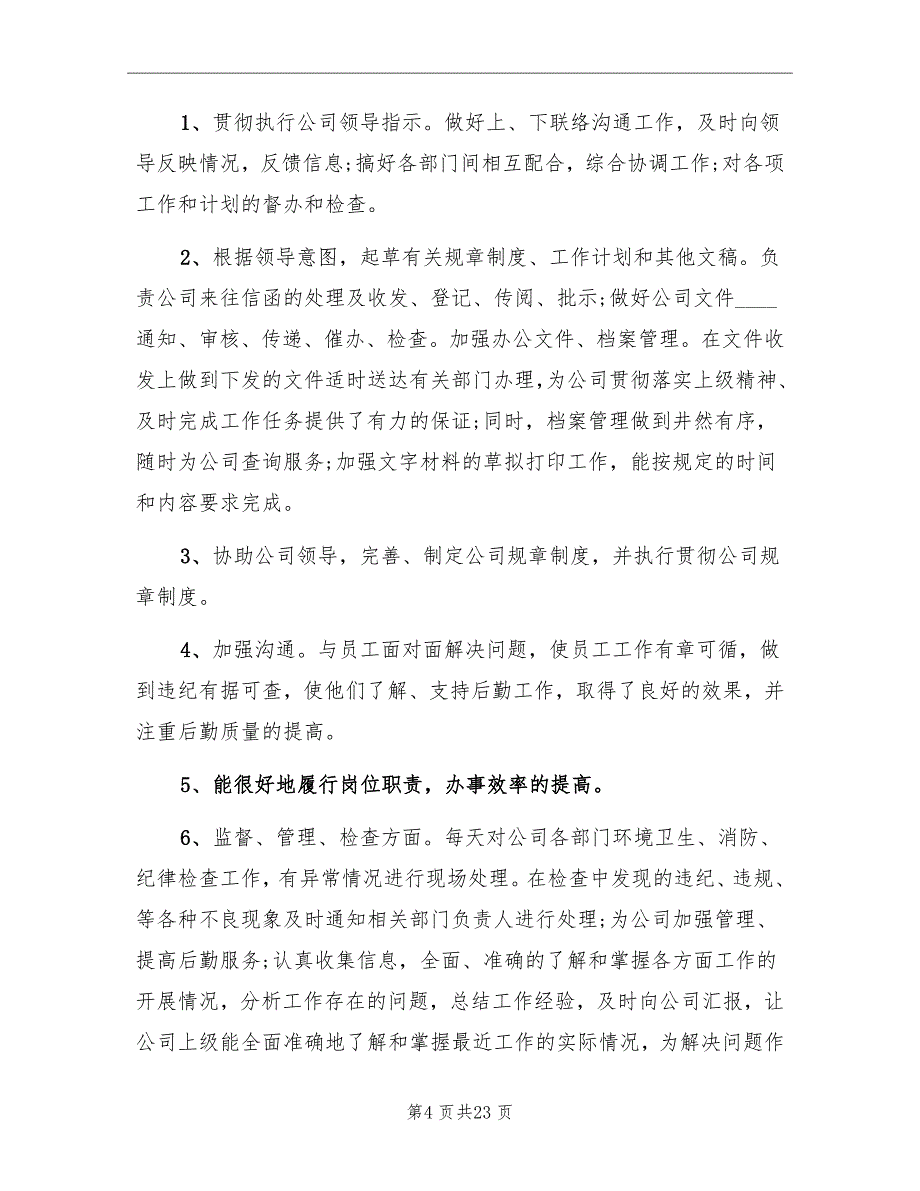 1、贯彻执行公司领导指示。做好上、下联络沟通工作，及时向领
导反映情况，反馈信息;搞好各部门间相互配合，综合协调工作;对各项
工作和计划的督办和检查。
2、根据领导意图，起草有关规章制度、工作计划和其他文稿。负
责公司来往信函的处理及收发、登记、传阅、批示;做好公司文件____
通知、审核、传递、催办、检查。加强办公文件、档案管理。在文件收
发上做到下发的文件适时送达有关部门办理，为公司贯彻落实上级精神、
及时完成工作任务提供了有力的保证;同时，档案管理做到井然有序，
随时为公司查询服务;加强文字材料的草拟打印工作，能按规定的时间
和内容要求完成。
3、协助公司领导，完善、制定公司规章制度，并执行贯彻公司规
章制度。
4、加强沟通。与员工面对面解决问题，使员工工作有章可循，做
到违纪有据可查，使他们了解、支持后勤工作，取得了良好的效果，并
注重后勤质量的提高。
5、能很好地履行岗位职责，办事效率的提高。
6、监督、管理、检查方面。每天对公司各部门环境卫生、消防、
纪律检查工作，有异常情况进行现场处理。在检查中发现的违纪、违规、
等各种不良现象及时通知相关部门负责人进行处理;为公司加强管理、
提高后勤服务;认真收集信息，全面、准确的了解和掌握各方面工作的
开展情况，分析工作存在的问题，总结工作经验，及时向公司汇报，让
公司上级能全面准确地了解和掌握最近工作的实际情况，为解决问题作
第4 页共23 页